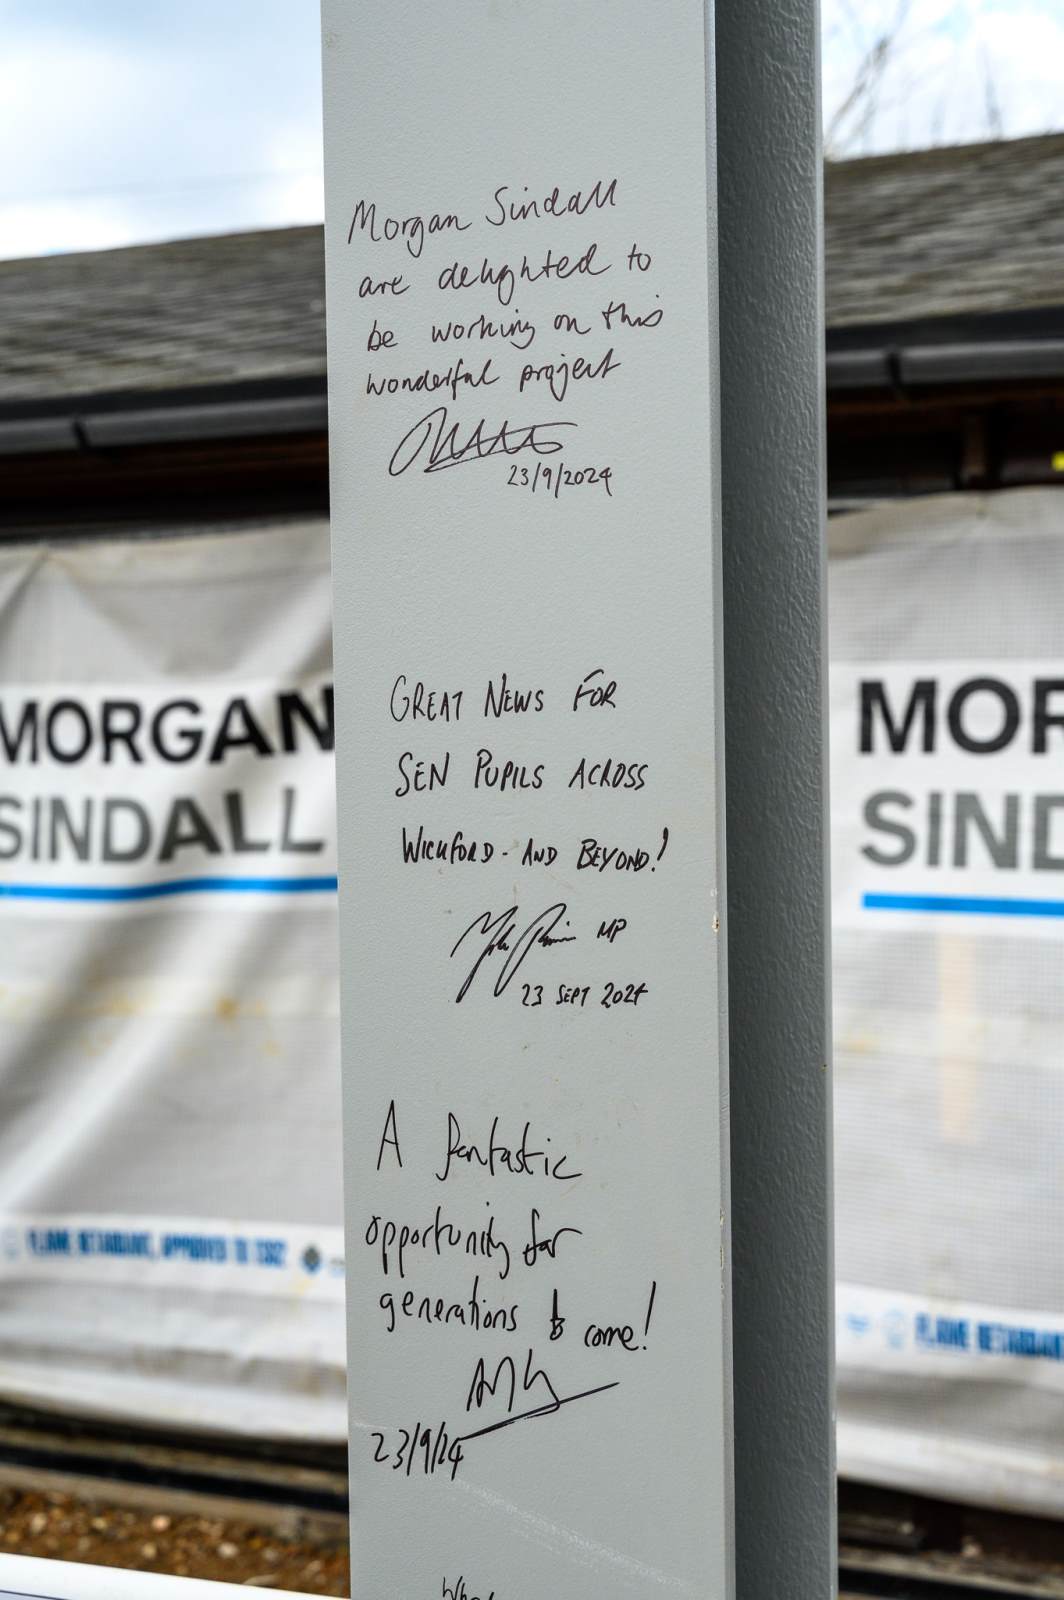 Morgan Sindall
are delighted to
be working on this
wonderful project
23/9/2024
GREAT NEWS FOR
SEN PUPILS ACROSS
WICKFORD - AND BEYOND!
MP
23 SEPT 2024
A fantastic
opportunity for
generations to come!
23/9/24
MORGAN
SINDALL
FLAME RETARDANT, APPROVED TO
MOR
SIND
FLAME RETARDANT